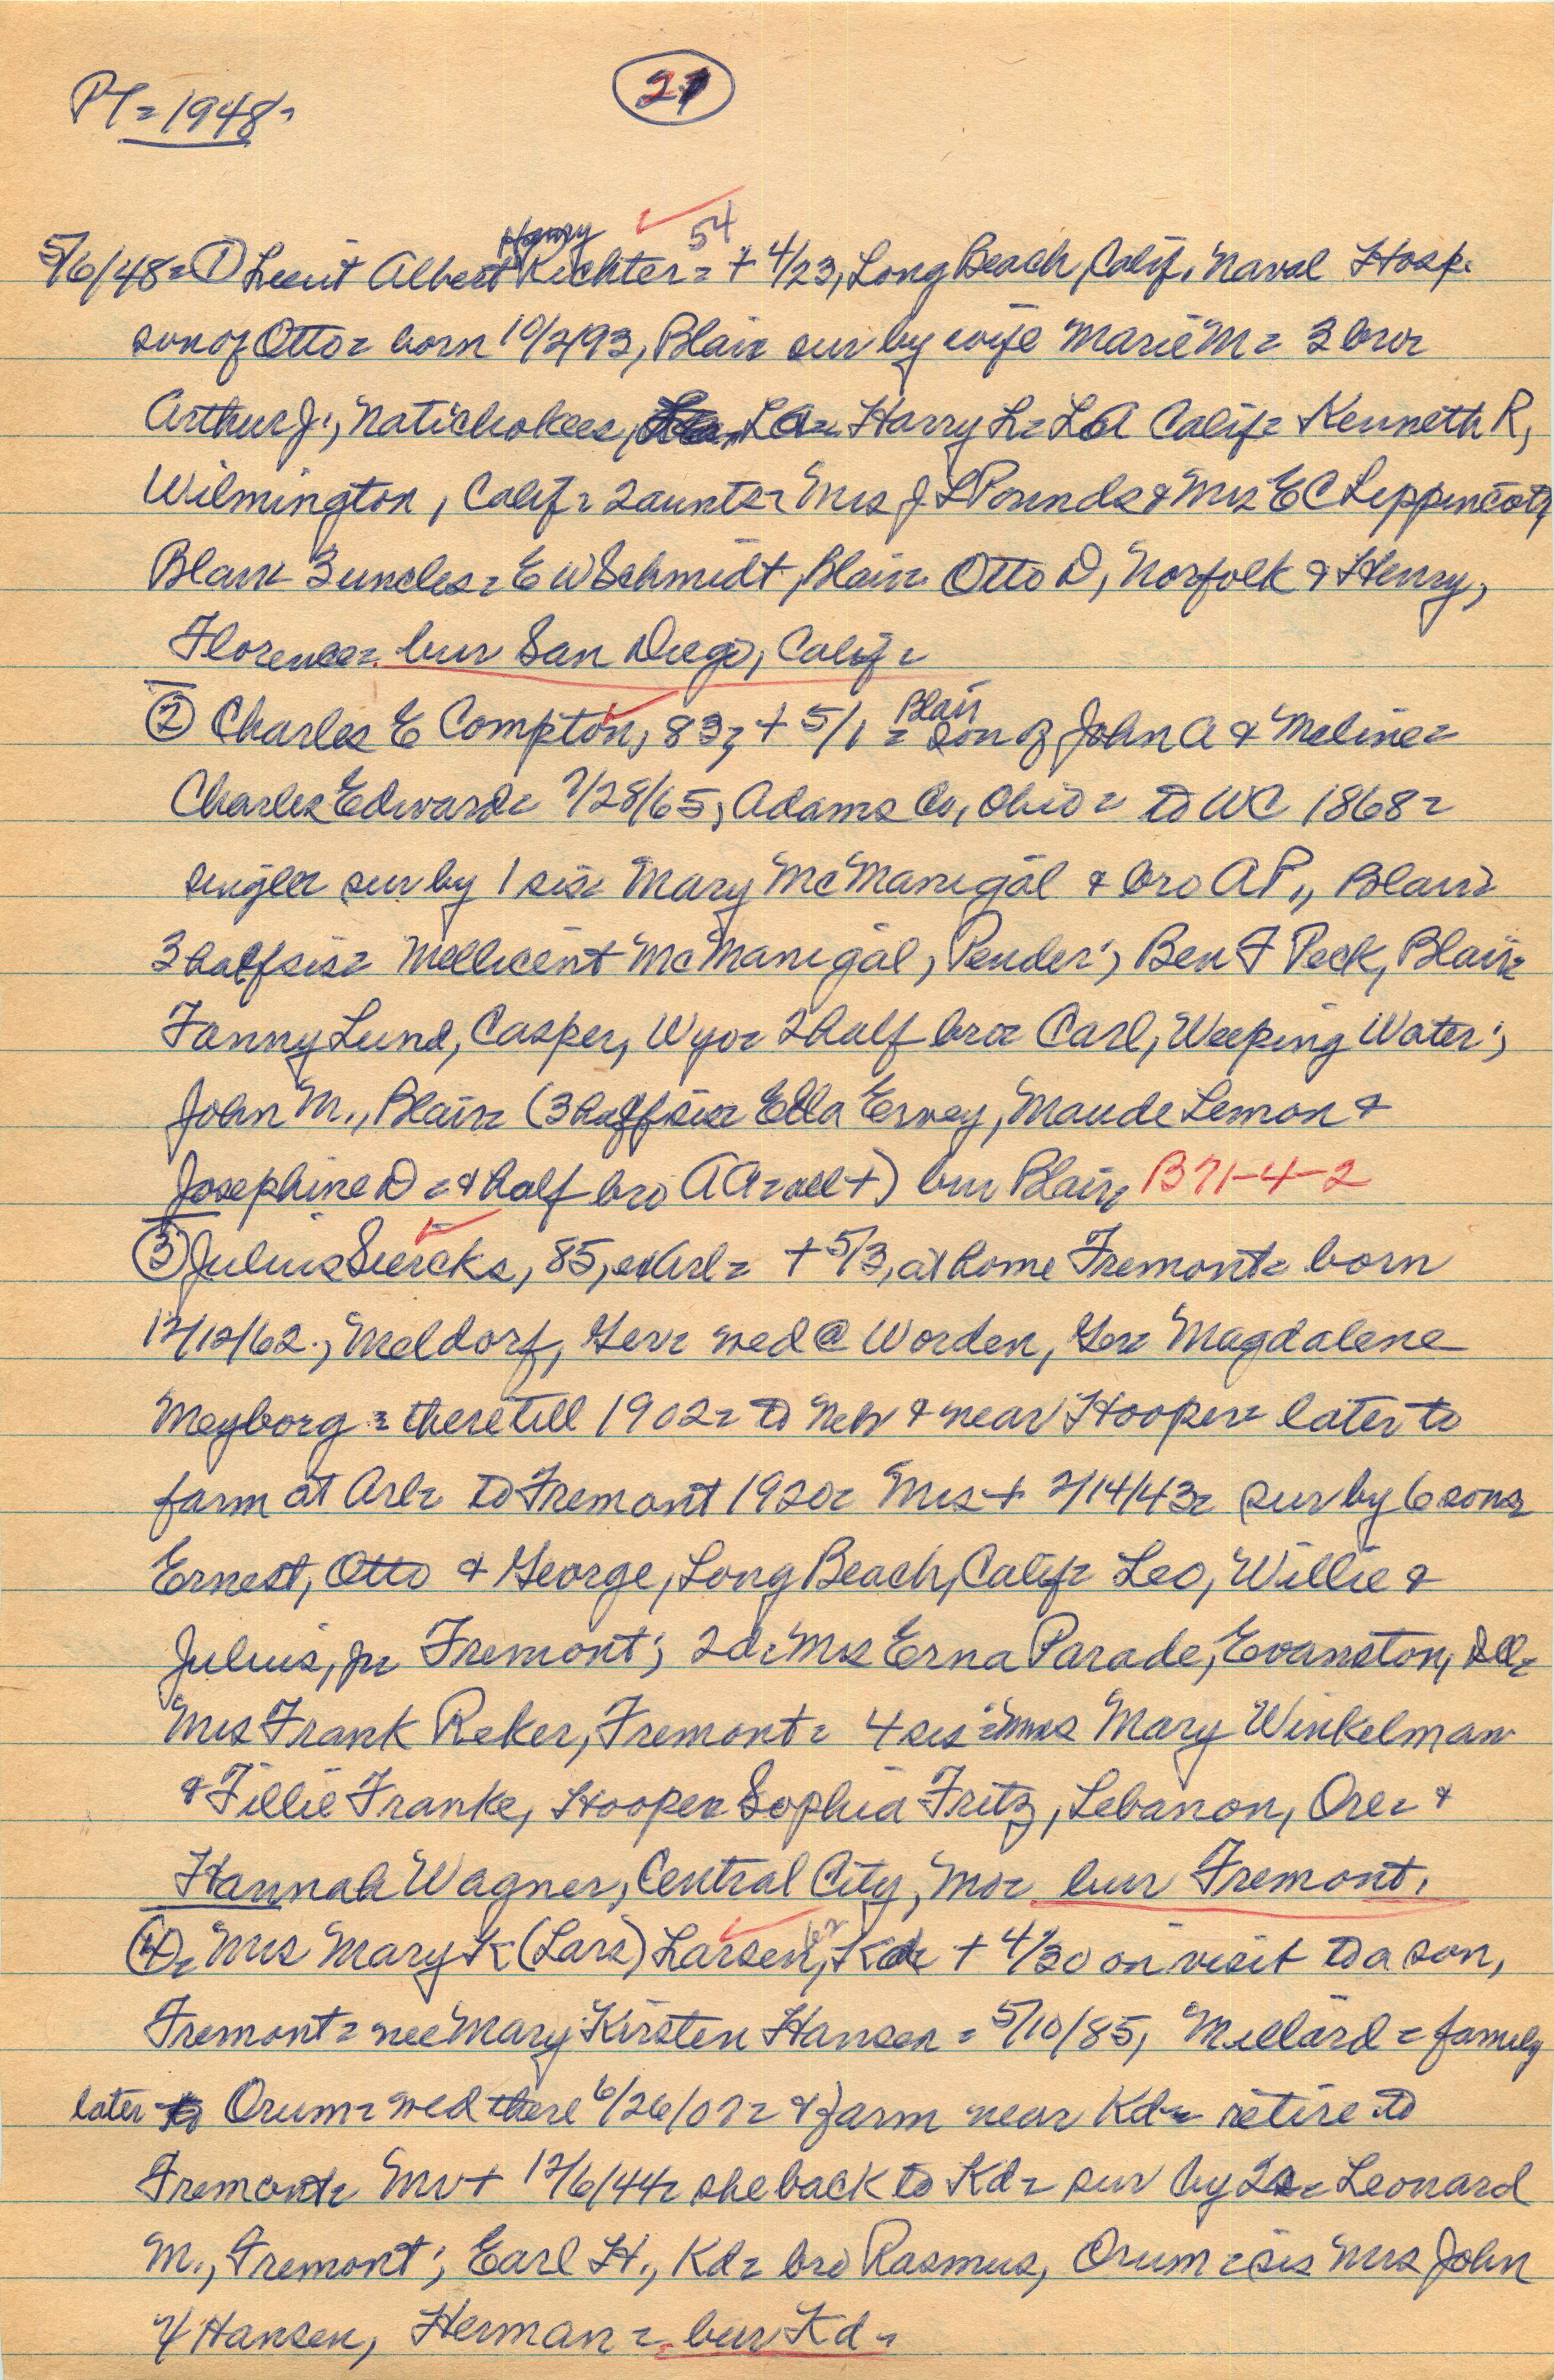 PT = 1948 =
21
Henry 54
5/6/48 = ① Lieut Albert Richter = + 4/23, Long Beach, Calif, Naval Hosp.
son of Otto = born 10/2/93, Blair sur by wife Marie M = 3 bro =
Arthur J., Natichokees, LA = Harry L = LA Calif = Kenneth R,
Wilmington, Calif = 2 aunts = Mrs J L Pounds & Mrs E C Lippincott,
Blair 3 uncles = E W Schmidt, Blair Otto D, Norfolk & Henry,
Florence = bur San Diego, Calif =
② Charles E Compton, 83, + 5/1 = Blair son of John A & Meline =
Charles Edward = 7/28/65, Adams Co, Ohio = to WC 1868 =
single = sur by 1 sis = Mary McManigal & bro A P., Blair =
3 half sis = Mellicent McManigal, Pender; Ben F Peck, Blair =
Fanny Lund, Casper, Wyo = 2 half bro = Carl, Weeping Water;
John M., Blair = (3 half sis = Ella Ervey, Maude Lemon &
Josephine D = & half bro A A = all +) bur Blair, B71-4-2
③ Julius Siercks, 85, ex Arl = + 5/3, at home Fremont = born
12/12/62., Meldorf, Ger = wed @ Worden, Ger = Magdalene
Meyborg = there till 1902 = to Neb & near Hooper = later to
farm at Arl = to Fremont 1920 = Mrs + 2/14/43 = sur by 6 sons
Ernest, Otto & George, Long Beach, Calif = Leo, Willie &
Julius, Jr Fremont; 2 d = Mrs Erna Parade, Evanston, Ill =
Mrs Frank Reker, Fremont = 4 sis = Mmes Mary Winkelman
& Tillie Franke, Hooper Sophia Fritz, Lebanon, Ore = &
Hannah Wagner, Central City, Mo = bur Fremont.
④ = Mrs Mary K (Lars) Larsen, 62, Kd = + 4/30 on visit to a son,
Fremont = nee Mary Kirsten Hansen = 5/10/85, Millard = family
later to Orum = wed there 6/26/07 = & farm near Kd = retire to
Fremont = Mr + 12/6/44 = she back to Kd = sur by 2 s = Leonard
M., Fremont; Earl H., Kd = bro Rasmus, Orum = sis Mrs John
Y Hansen, Herman = bur Kd =